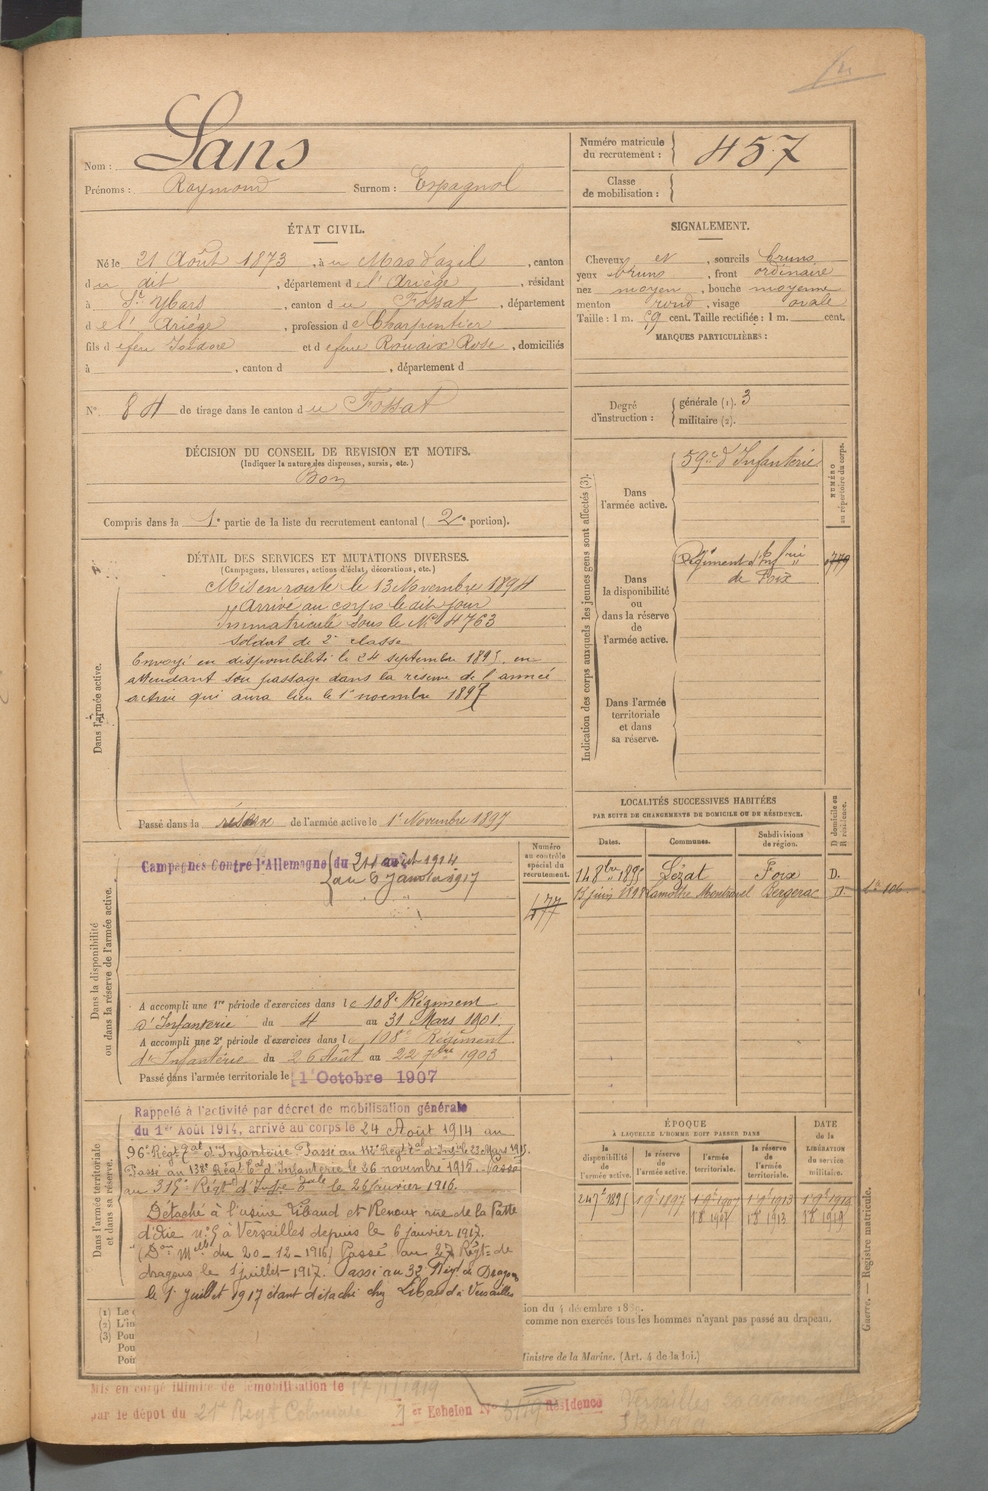 Nom : Sans
Prénoms : Raymond Surnom : Espagnol
Numéro matricule du recrutement : 457
Classe de mobilisation :
ÉTAT CIVIL.
Né le 21 Août 1873, à u Mas d'azil, canton
d u dit, département d e l'Ariège, résidant
à St Ybars, canton d u Fossat, département
d e l'Ariège, profession d e Charpentier
fils d e feu Isidore et d e feue Rouaix Rose, domiciliés
à , canton d , département d
N° 84 de tirage dans le canton d u Fossat
DÉCISION DU CONSEIL DE REVISION ET MOTIFS.
(Indiquer la nature des dispenses, sursis, etc.)
Bon
Compris dans la 1e partie de la liste du recrutement cantonal (2e portion).
SIGNALEMENT.
Cheveux et , sourcils bruns
yeux bruns , front ordinaire
nez moyen , bouche moyenne
menton rond , visage ovale
Taille : 1 m. 69 cent. Taille rectifiée : 1 m. cent.
MARQUES PARTICULIÈRES :
Degré d'instruction : générale (1). 3
militaire (2).
DÉTAIL DES SERVICES ET MUTATIONS DIVERSES.
(Campagnes, blessures, actions d'éclat, décorations, etc.)
Dans l'armée active.
Mis en route le 13 Novembre 1894
Arrivé au corps le dit jour
Immatriculé sous le N° 4763
Soldat de 2e classe
Envoyé en disponibilité le 24 septembre 1895 en
attendant son passage dans la réserve de l'armée
active qui aura lieu le 1er novembre 1897
Passé dans la réserve de l'armée active le 1er Novembre 1897
Indication des corps auxquels les jeunes gens sont affectés (3).
NUMÉRO au répertoire du corps.
Dans l'armée active.
59e d'Infanterie
Dans la disponibilité ou dans la réserve de l'armée active.
Régiment d'Inf
de Foix
Dans l'armée territoriale et dans sa réserve.
Dans la disponibilité ou dans la réserve de l'armée active.
Campagnes Contre l'Allemagne du 24 août 1914
au 6 Janvier 1917
Numéro au contrôle spécial du recrutement.
477
A accompli une 1re période d'exercices dans le 108e Régiment
d'Infanterie du 4 au 31 Mars 1901.
A accompli une 2e période d'exercices dans le 108e Régiment
d'Infanterie du 26 Août au 22 7bre 1903
Passé dans l'armée territoriale le 1er Octobre 1907
LOCALITÉS SUCCESSIVES HABITÉES
PAR SUITE DE CHANGEMENTS DE DOMICILE OU DE RÉSIDENCE.
Dates. Communes. Subdivisions de région. D domicile ou R résidence.
14 8bre 1895 Lézat Foix D.
15 juin 1898 Lamothe Montravel Bergerac D
Dans l'armée territoriale et dans sa réserve.
Rappelé à l'activité par décret de mobilisation générale
du 1er Août 1914, arrivé au corps le 24 Août 1914 au
96e Régt d'Infanterie Passé au Régt d'Inf le 23 Mars 1915.
Passé au 138e Régt d'Infanterie le 26 novembre 1915. Passé
au 315e Régt d'Infie le 26 février 1916.
Détaché à l'usine Libaud et Renoux rue de la Patte
d'Oie n° 5 à Versailles depuis le 6 janvier 1917.
du 20-12-1916) Passé au 27 Régt de
dragons le 1 juillet 1917. Passé au 32 Régt de Dragons
le 1er Juillet 1917 étant détaché chez Libaud à Versailles
ÉPOQUE
À LAQUELLE L'HOMME DOIT PASSER DANS
la disponibilité de l'armée active. la réserve de l'armée active. l'armée territoriale. la réserve de l'armée territoriale.
DATE de la LIBÉRATION du service militaire.
24 7e 1895 1 9e 1897 1 9e 1907 1 9e 1913 1 9e 1919
1 8 1907 1 8 1913 1 8 1919
(1) Le
(2) L'in
(3) Pou
Pou
Poin
ion du 4 décembre 1889.
comme non exercés tous les hommes n'ayant pas passé au drapeau.
Ministre de la Marine. (Art. 4 de la loi.)
Guerre. — Registre matricule.
Mis en congé illimité de démobilisation le 17/1/1919
par le dépôt du 21e Régt Coloniale Echelon N° Résidence Versailles